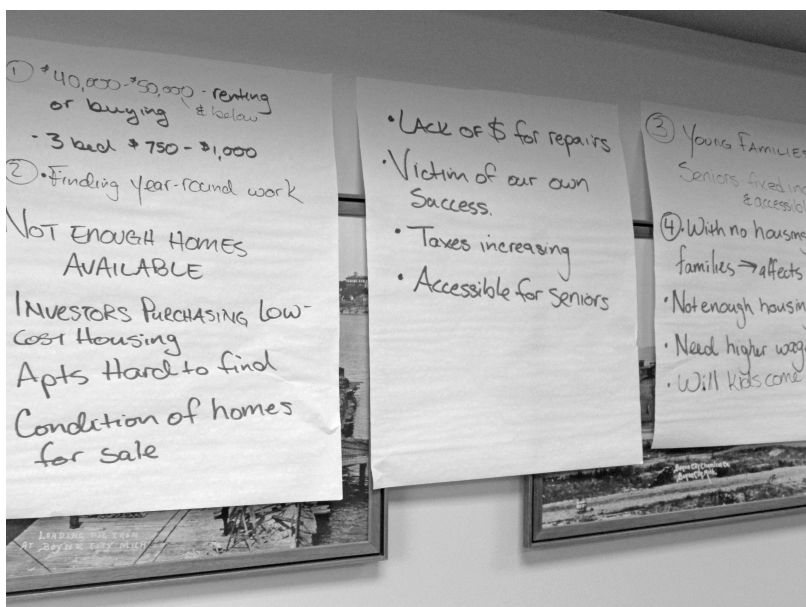 ① $40,000-$50,000 - renting
or buying & below
- 3 bed $750 - $1,000
② • Finding year-round work
NOT ENOUGH HOMES
AVAILABLE
INVESTORS PURCHASING LOW-
COST HOUSING
Apts Hard to find
Condition of homes
for sale
• LACK OF $ for repairs
• Victim of our own
Success.
• Taxes increasing
• Accessible for seniors
③ YOUNG FAMILIES
Seniors-fixed in
& accessibl
④ • With no housing
families → affects
• Not enough housin
• Need higher wag
• Will kids come
LOADING PIG IRON
AT BOYNE CITY MICH
Boyne City Chemical Co.
Boyne City, Mich.